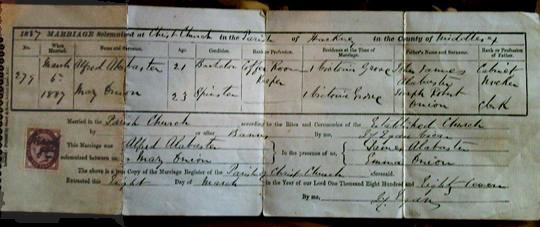 1887 MARRIAGE Solemnized at Christ Church in the Parish of Hackney in the County of Middlesex
No. When Married. Name and Surname. Age Condition. Rank or Profession. Residence at the Time of Marriage. Father's Name and Surname. Rank or Profession of Father.
279 March 6th 1887 Alfred Alabaster 21 Bachelor Coffee Room Keeper 1 Victoria Grove James Alabaster Cabinet Maker
May Onion 23 Spinster 1 Victoria Grove Joseph Robert Onion Clerk
Married in the Parish Church according to the Rites and Ceremonies of the Established Church
by or after Banns By me,
This Marriage was solemnized between us Alfred Alabaster May Onion In the presence of us James Alabaster Emma Onion
The above is a true Copy of the Marriage Register of the Parish of Christ Church aforesaid.
Extracted this Eight Day of March in the Year of our Lord One Thousand Eight Hundred and Eighty Seven
By me,